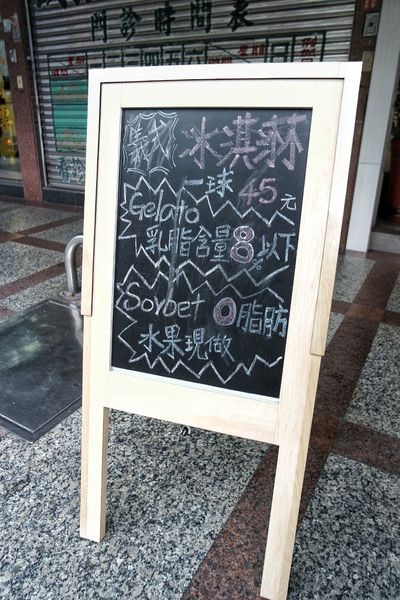 門診時間表
義式 冰淇淋
一球 45元
Gelato
乳脂含量8%以下
Sorbet 0脂肪
水果現做